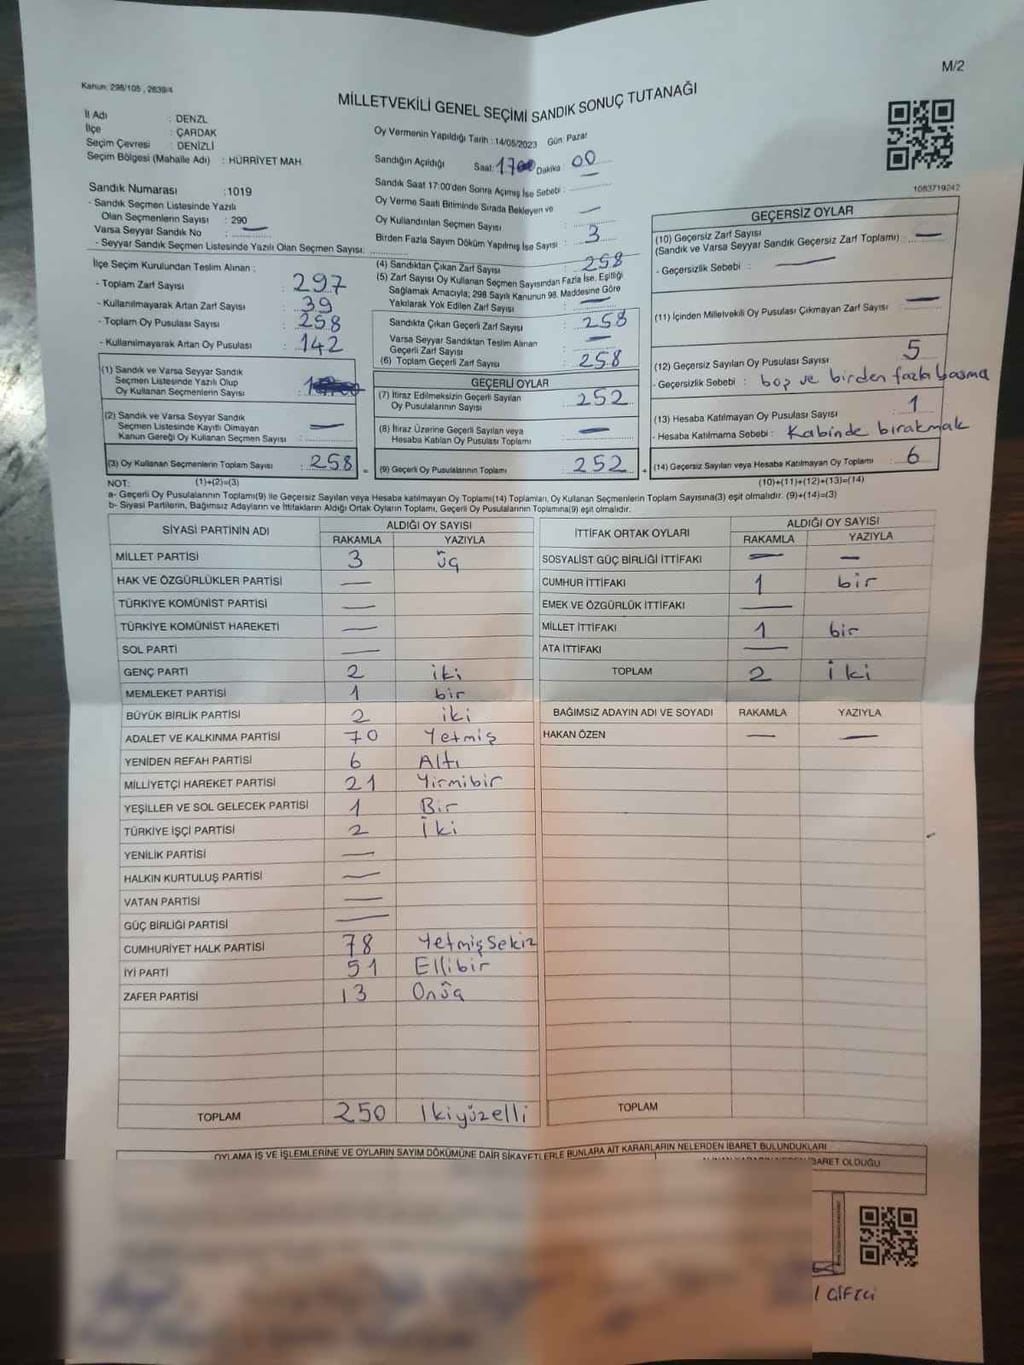 M/2
Kanun: 298/105 , 2839/4
MİLLETVEKİLİ GENEL SEÇİMİ SANDIK SONUÇ TUTANAĞI
İl Adı : DENZL
İlçe : ÇARDAK
Seçim Çevresi : DENİZLİ
Seçim Bölgesi (Mahalle Adı) : HÜRRİYET MAH.
Sandık Numarası :1019
- Sandık Seçmen Listesinde Yazılı
Olan Seçmenlerin Sayısı : 290
Varsa Seyyar Sandık No : —
- Seyyar Sandık Seçmen Listesinde Yazılı Olan Seçmen Sayısı:
İlçe Seçim Kurulundan Teslim Alınan :
- Toplam Zarf Sayısı : 297
- Kullanılmayarak Artan Zarf Sayısı : 39
- Toplam Oy Pusulası Sayısı : 258
- Kullanılmayarak Artan Oy Pusulası : 142
(1) Sandık ve Varsa Seyyar Sandık
Seçmen Listesinde Yazılı Olup
Oy Kullanan Seçmenlerin Sayısı :
(2) Sandık ve Varsa Seyyar Sandık
Seçmen Listesinde Kayıtlı Olmayan
Kanun Gereği Oy Kullanan Seçmen Sayısı : —
(3) Oy Kullanan Seçmenlerin Toplam Sayısı : 258
Oy Vermenin Yapıldığı Tarih : 14/05/2023 Gün: Pazar
Sandığın Açıldığı Saat: 17 Dakika : 00
Sandık Saat 17:00'den Sonra Açımış İse Sebebi :
Oy Verme Saati Bitiminde Sırada Bekleyen ve
Oy Kullandırılan Seçmen Sayısı : —
Birden Fazla Sayım Döküm Yapılmış İse Sayısı : 3
(4) Sandıktan Çıkan Zarf Sayısı : 258
(5) Zarf Sayısı Oy Kullanan Seçmen Sayısından Fazla İse, Eşitliği
Sağlamak Amacıyla; 298 Sayılı Kanunun 98. Maddesine Göre
Yakılarak Yok Edilen Zarf Sayısı : —
Sandıkta Çıkan Geçerli Zarf Sayısı : 258
Varsa Seyyar Sandıktan Teslim Alınan
Geçerli Zarf Sayısı : —
(6) Toplam Geçerli Zarf Sayısı : 258
GEÇERLİ OYLAR
(7) İtiraz Edilmeksizin Geçerli Sayılan
Oy Pusulalarının Sayısı : 252
(8) İtiraz Üzerine Geçerli Sayılan veya
Hesaba Katılan Oy Pusulası Toplamı : —
(9) Geçerli Oy Pusulalarının Toplamı : 252
1083719242
GEÇERSİZ OYLAR
(10) Geçersiz Zarf Sayısı
(Sandık ve Varsa Seyyar Sandık Geçersiz Zarf Toplamı) : —
- Geçersizlik Sebebi : —
(11) İçinden Milletvekili Oy Pusulası Çıkmayan Zarf Sayısı : —
(12) Geçersiz Sayılan Oy Pusulası Sayısı : 5
- Geçersizlik Sebebi : boş ve birden fazla basma
(13) Hesaba Katılmayan Oy Pusulası Sayısı : 1
- Hesaba Katılmama Sebebi : Kabinde bırakmak
(14) Geçersiz Sayılan veya Hesaba Katılmayan Oy Toplamı : 6
NOT: (1)+(2)=(3) (10)+(11)+(12)+(13)=(14)
a- Geçerli Oy Pusulalarının Toplamı(9) ile Geçersiz Sayılan veya Hesaba katılmayan Oy Toplamı(14) Toplamları, Oy Kullanan Seçmenlerin Toplam Sayısına(3) eşit olmalıdır. (9)+(14)=(3)
b- Siyasi Partilerin, Bağımsız Adayların ve İttifakların Aldığı Ortak Oyların Toplamı, Geçerli Oy Pusulalarının Toplamına(9) eşit olmalıdır.
SİYASİ PARTİNİN ADI ALDIĞI OY SAYISI
RAKAMLA YAZIYLA
MİLLET PARTİSİ 3 üç
HAK VE ÖZGÜRLÜKLER PARTİSİ —
TÜRKİYE KOMÜNİST PARTİSİ —
TÜRKİYE KOMÜNİST HAREKETİ —
SOL PARTİ —
GENÇ PARTİ 2 iki
MEMLEKET PARTİSİ 1 bir
BÜYÜK BİRLİK PARTİSİ 2 iki
ADALET VE KALKINMA PARTİSİ 70 Yetmiş
YENİDEN REFAH PARTİSİ 6 Altı
MİLLİYETÇİ HAREKET PARTİSİ 21 Yirmibir
YEŞİLLER VE SOL GELECEK PARTİSİ 1 Bir
TÜRKİYE İŞÇİ PARTİSİ 2 İki
YENİLİK PARTİSİ —
HALKIN KURTULUŞ PARTİSİ —
VATAN PARTİSİ —
GÜÇ BİRLİĞİ PARTİSİ —
CUMHURİYET HALK PARTİSİ 78 YetmişSekiz
İYİ PARTİ 51 Ellibir
ZAFER PARTİSİ 13 Onüç
TOPLAM 250 İkiyüzelli
İTTİFAK ORTAK OYLARI ALDIĞI OY SAYISI
RAKAMLA YAZIYLA
SOSYALİST GÜÇ BİRLİĞİ İTTİFAKI — —
CUMHUR İTTİFAKI 1 bir
EMEK VE ÖZGÜRLÜK İTTİFAKI —
MİLLET İTTİFAKI 1 bir
ATA İTTİFAKI —
TOPLAM 2 iki
BAĞIMSIZ ADAYIN ADI VE SOYADI RAKAMLA YAZIYLA
HAKAN ÖZEN — —
TOPLAM
OYLAMA İŞ VE İŞLEMLERİNE VE OYLARIN SAYIM DÖKÜMÜNE DAİR ŞİKAYETLERLE BUNLARA AİT KARARLARIN NELERDEN İBARET BULUNDUKLARI
İBARET OLDUĞU
ÇİFTÇİ